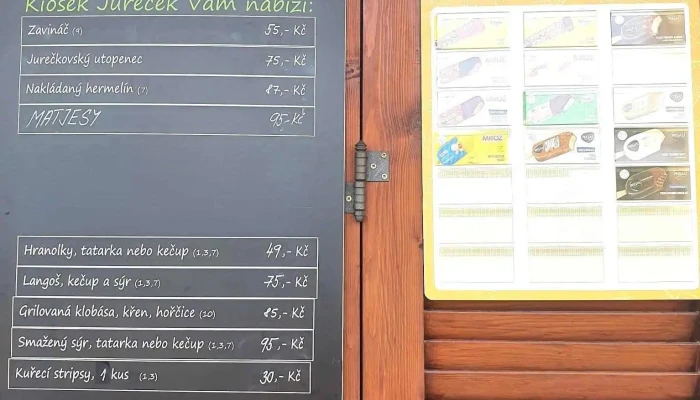 Kiosek Jureček Vám nabízí:
Zavináč (4) 55,- Kč
Jurečkovský utopenec 75,- Kč
Nakládaný hermelín (7) 87,- Kč
MATJESY 95,- Kč
Hranolky, tatarka nebo kečup (1,3,7) 49,- Kč
Langoš, kečup a sýr (1,3,7) 75,- Kč
Grilovaná klobása, křen, hořčice (10) 85,- Kč
Smažený sýr, tatarka nebo kečup (1,3,7) 95,- Kč
Kuřecí stripsy, 1 kus (1,3) 30,- Kč